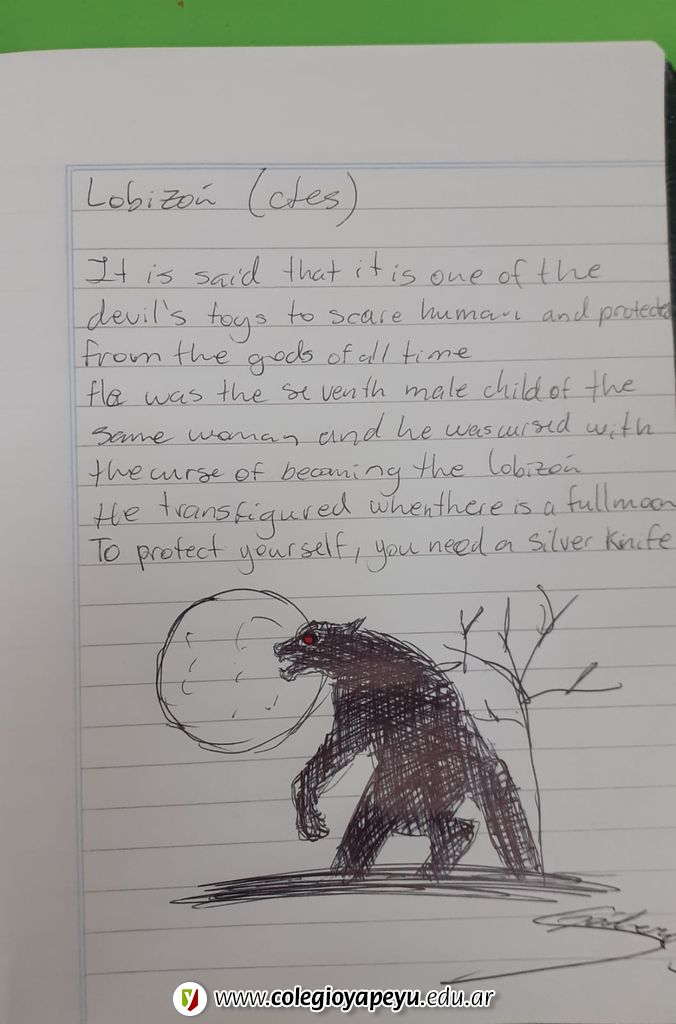 Lobizoń (ctes)
It is said that it is one of the
devil's toys to scare human and protects
from the gods of all time
He was the seventh male child of the
same woman and he was cursed with
the curse of becoming the lobizoń
He transfigured when there is a full moon
To protect yourself, you need a silver knife
www.colegioyapeyu.edu.ar